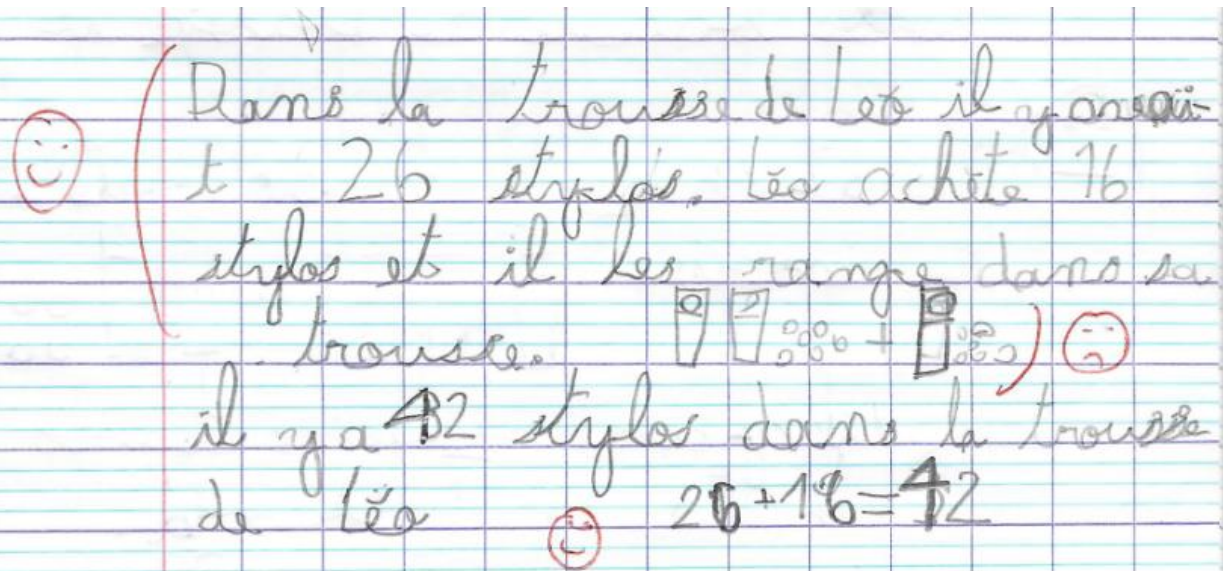 Dans la trousse de Leo il y avai-
t 26 stylos. Léo achète 16
stylos et il les range dans sa
trousse. +
il y a 42 stylos dans la trousse
de Léo 26+16=42